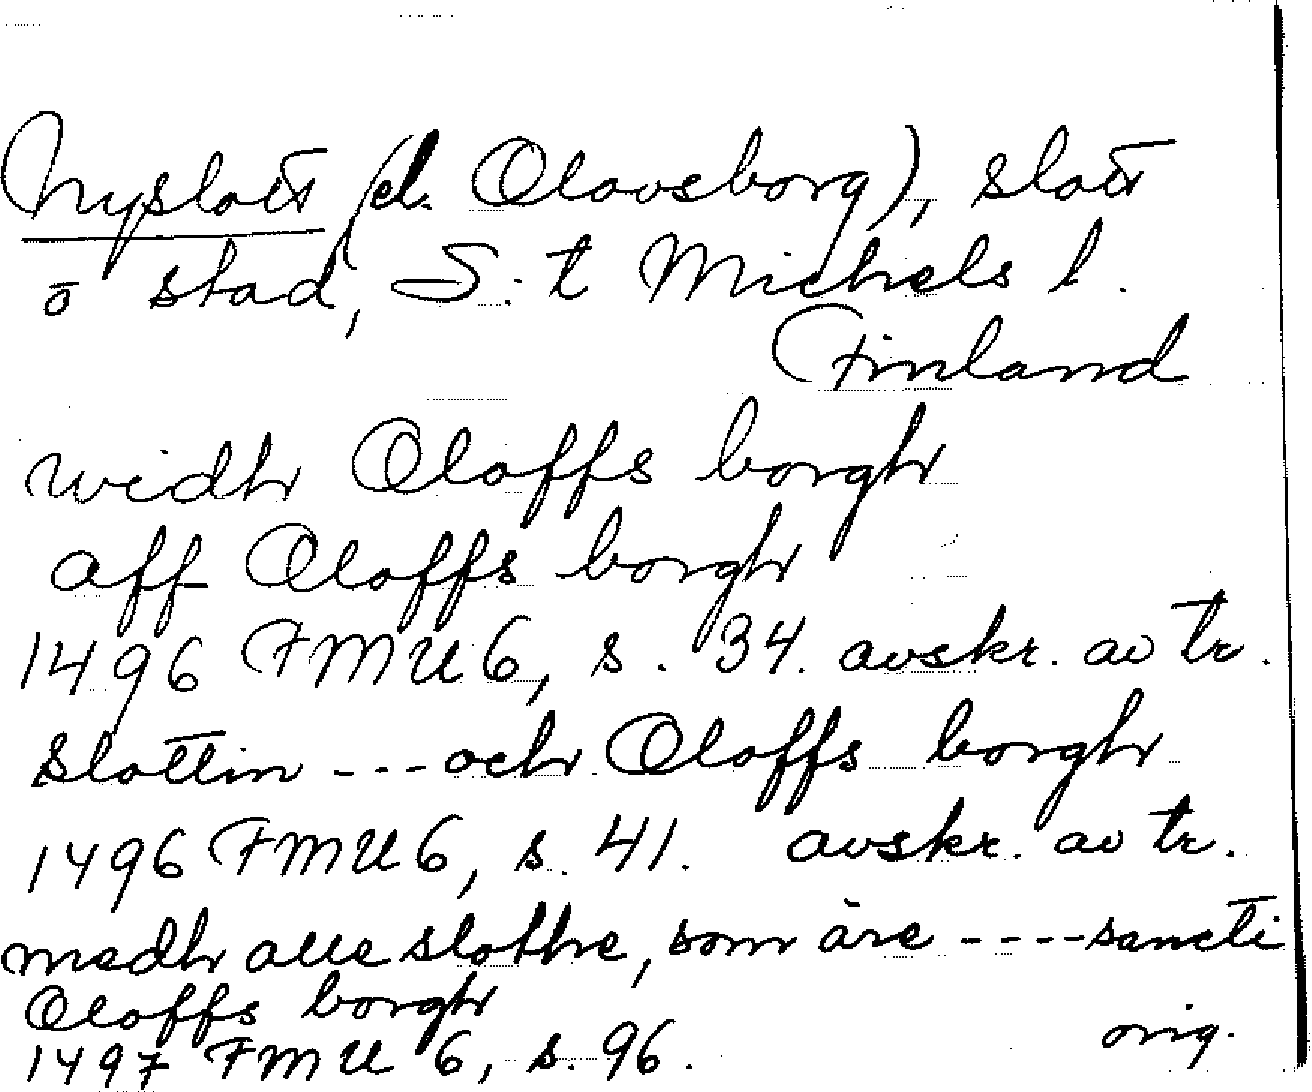 Nyslott (el. Olavsborg), slott
o stad, S:t Michels l.
Finland
widh Oloffs borgh
aff Oloffs borgh
1496 FMU 6, s. 34. avskr. av tr.
Slottin --- och Oloffs borgh
1496 FMU 6, s. 41. avskr. av tr.
medh alle slothe, som äre ---- sancti
Oloffs borgh
1497 FMU 6, s. 96. orig.